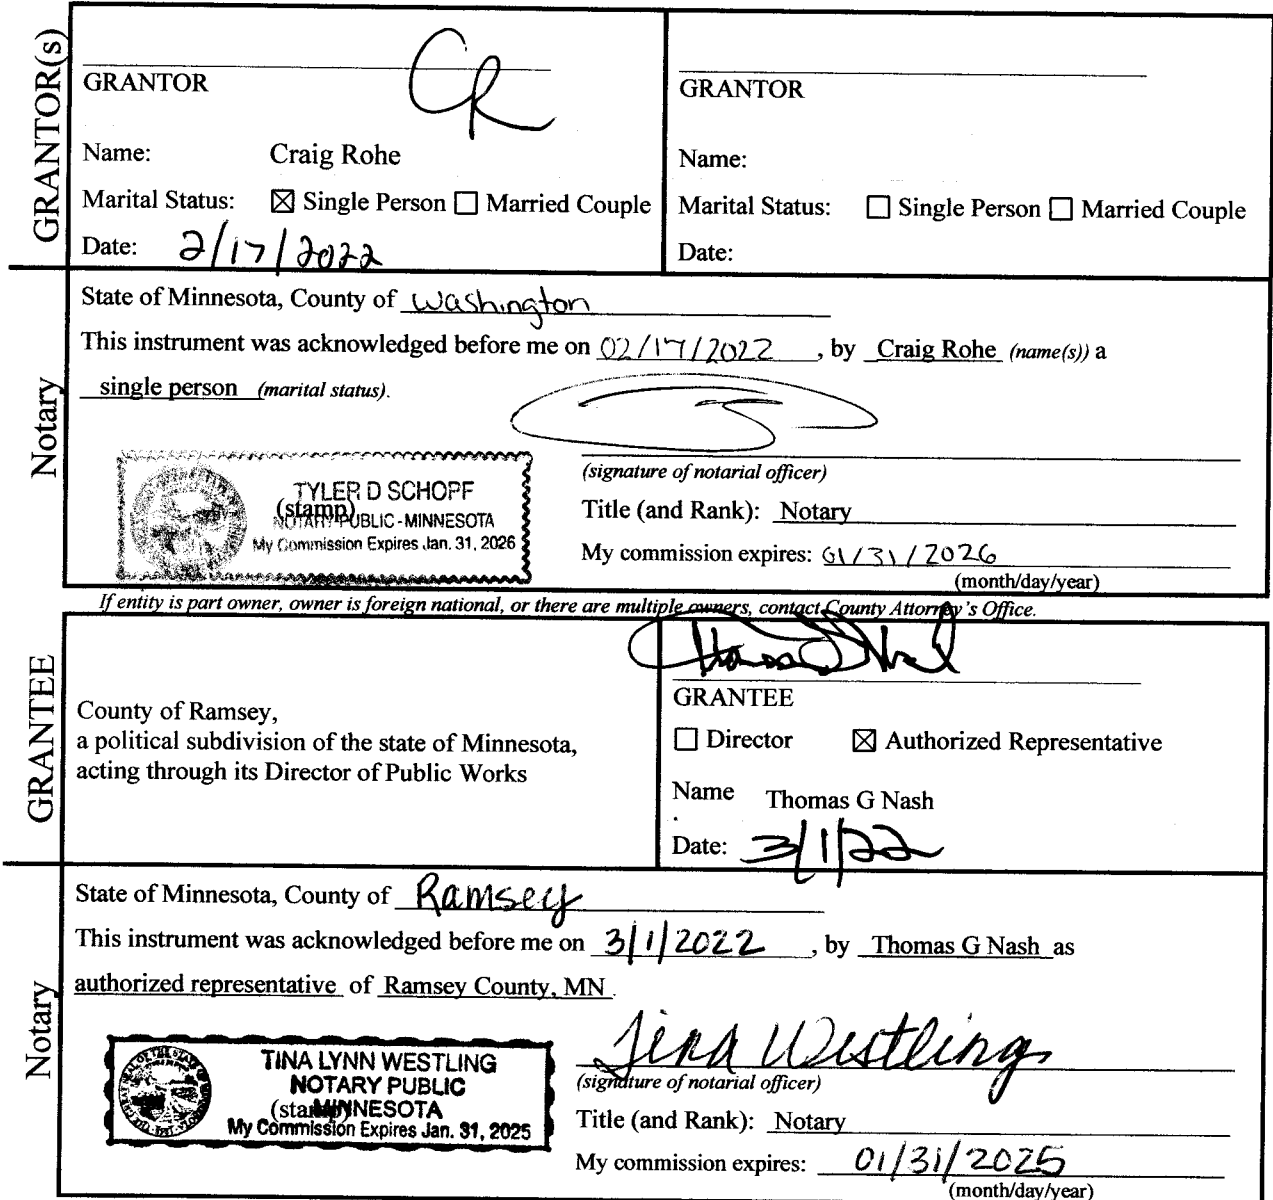 GRANTOR(s)
GRANTOR
CR
Name: Craig Rohe
Marital Status: ☒ Single Person ☐ Married Couple
Date: 2/17/2022
GRANTOR
Name:
Marital Status: ☐ Single Person ☐ Married Couple
Date:
Notary
State of Minnesota, County of Washington
This instrument was acknowledged before me on 02/17/2022, by Craig Rohe (name(s)) a
single person (marital status).
(signature of notarial officer)
TYLER D SCHOPF
(stamp)
NOTARY PUBLIC - MINNESOTA
My Commission Expires Jan. 31, 2026
Title (and Rank): Notary
My commission expires: 01/31/2026
(month/day/year)
If entity is part owner, owner is foreign national, or there are multiple owners, contact County Attorney's Office.
GRANTEE
County of Ramsey,
a political subdivision of the state of Minnesota,
acting through its Director of Public Works
GRANTEE
☐ Director ☒ Authorized Representative
Name Thomas G Nash
Date: 3/1/22
Notary
State of Minnesota, County of Ramsey
This instrument was acknowledged before me on 3/1/2022, by Thomas G Nash as
authorized representative of Ramsey County, MN.
Tina Westling
(signature of notarial officer)
TINA LYNN WESTLING
NOTARY PUBLIC
(stamp)
MINNESOTA
My Commission Expires Jan. 31, 2025
Title (and Rank): Notary
My commission expires: 01/31/2025
(month/day/year)